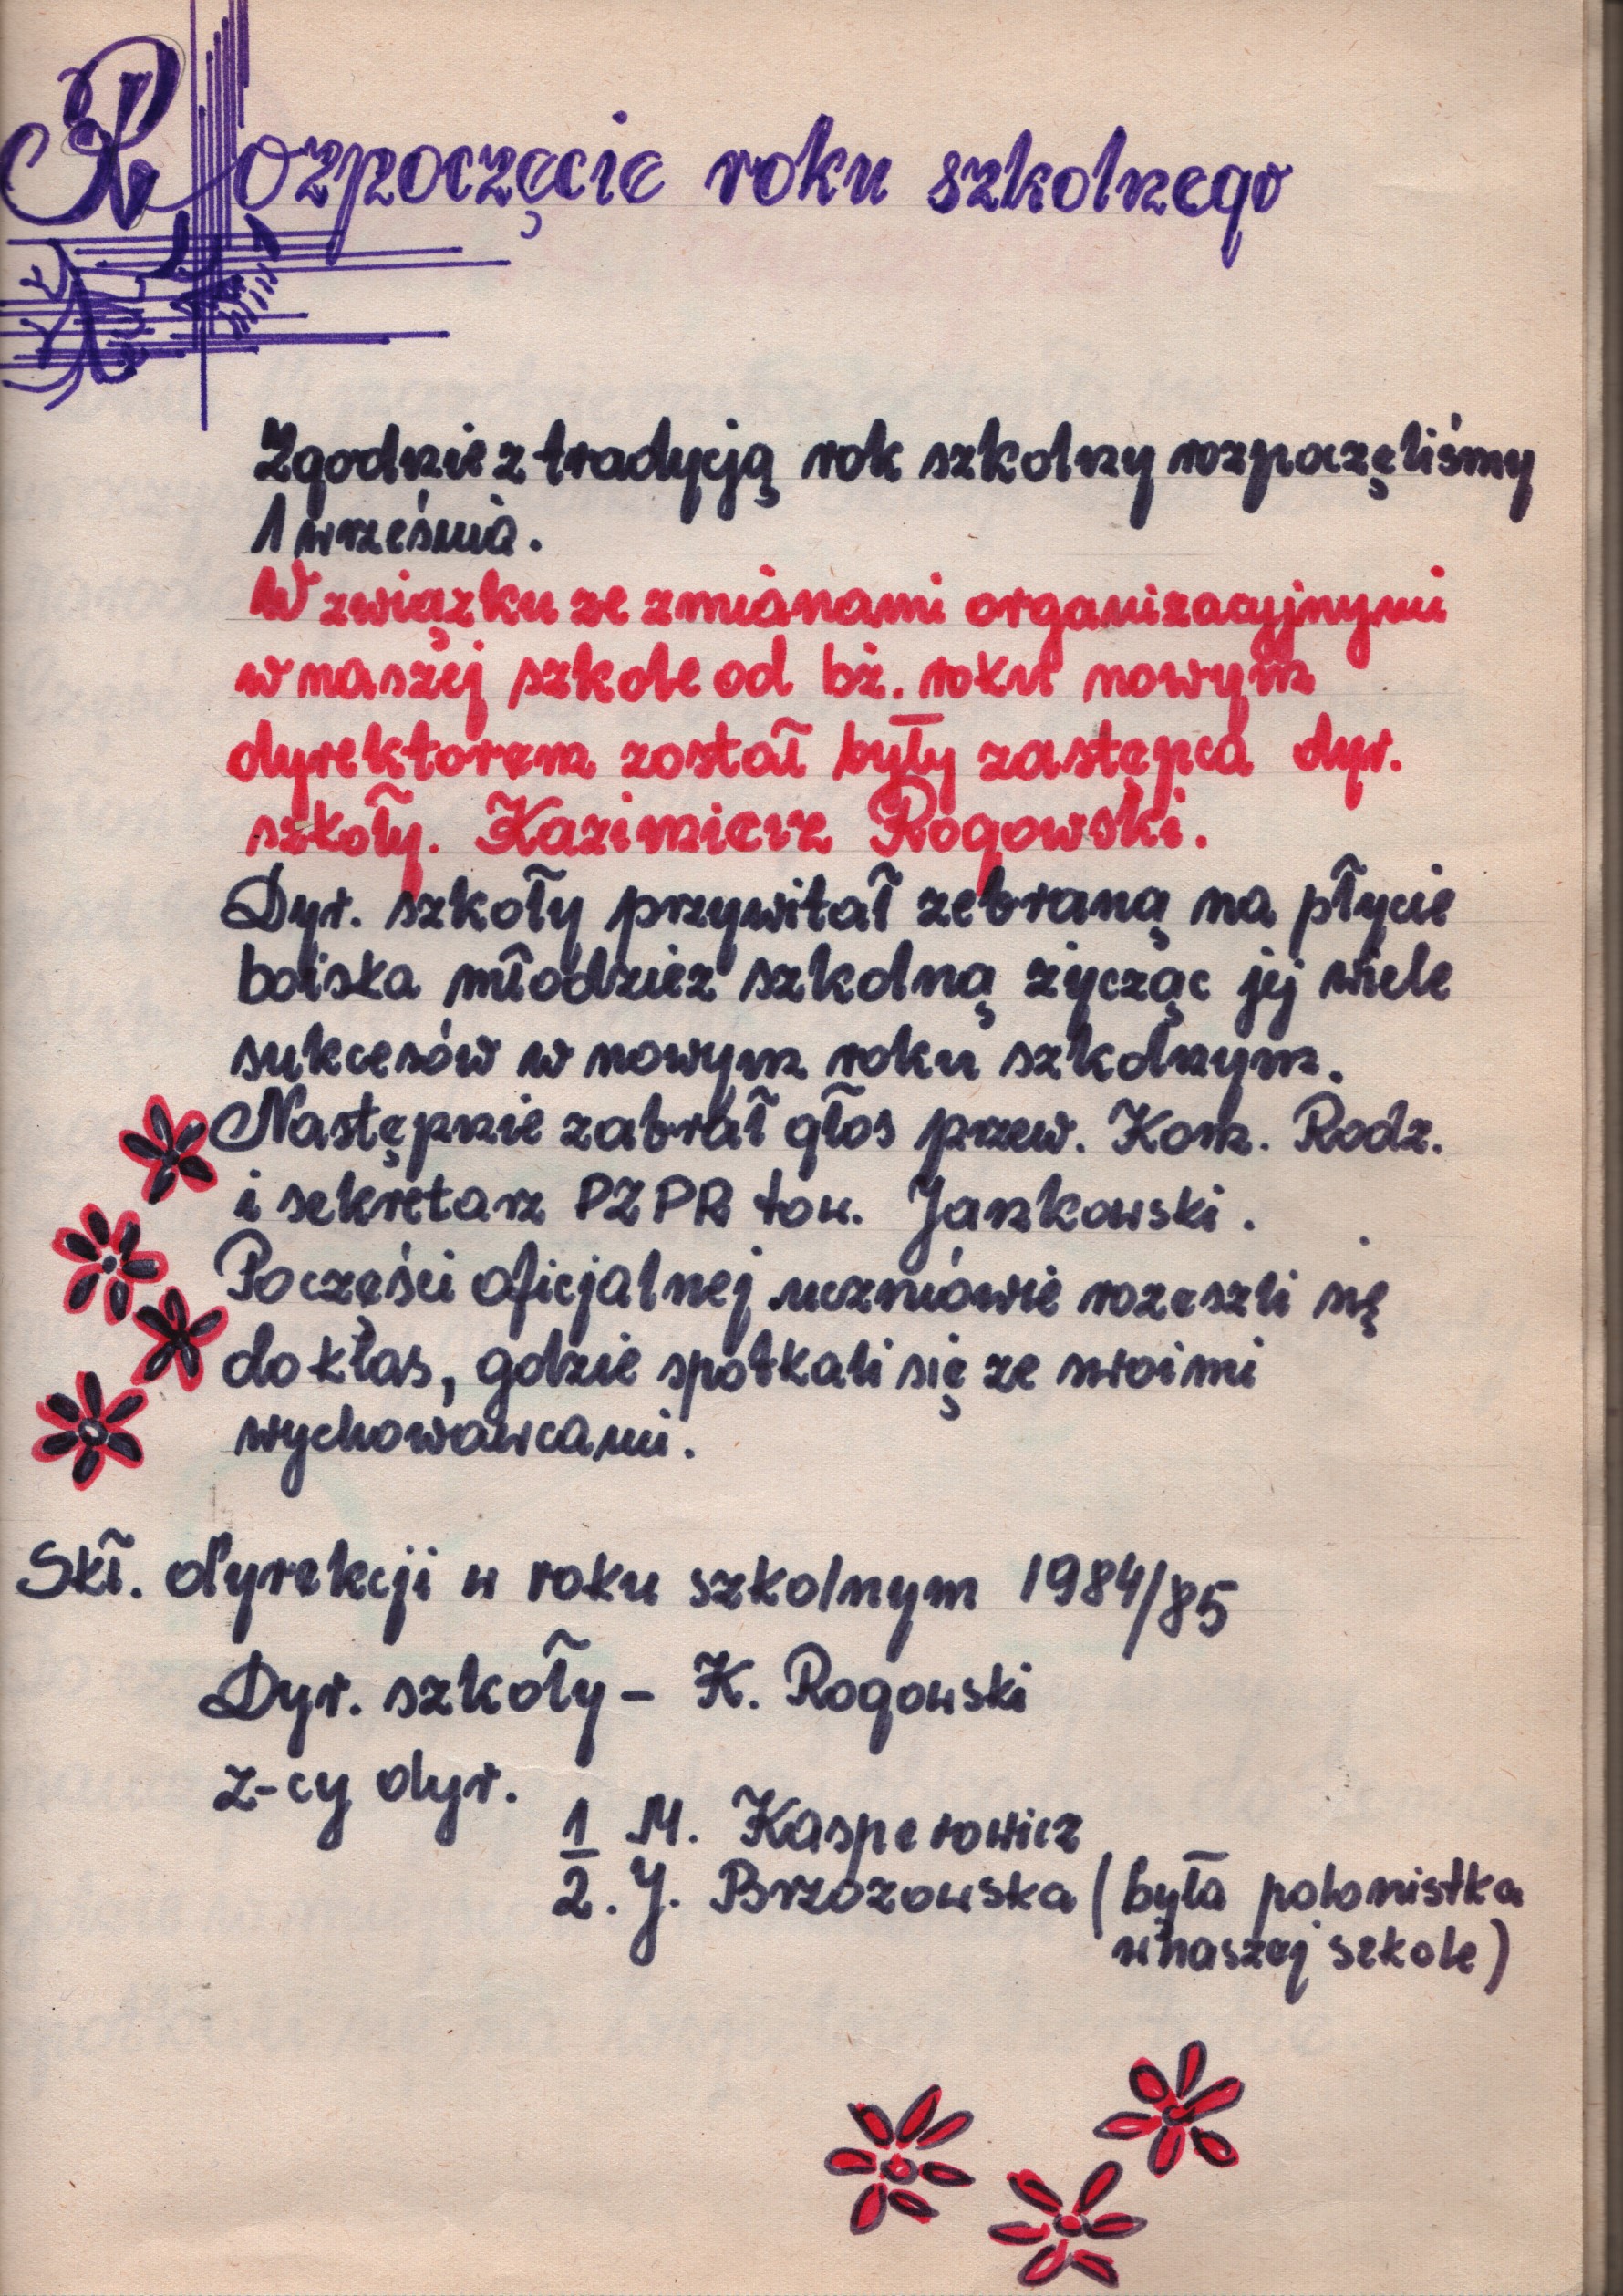 Rozpoczęcie roku szkolnego
Zgodnie z tradycją rok szkolny rozpoczęliśmy
1 września.
W związku ze zmianami organizacyjnymi
w naszej szkole od bż. roku nowym
dyrektorem został były zastępca dyr.
szkoły. Kazimierz Rogowski.
Dyr. szkoły przywitał zebraną na płycie
boiska młodzież szkolną życząc jej wiele
sukcesów w nowym roku szkolnym.
Następnie zabrał głos przew. Kom. Rodz.
i sekretarz PZPR tow. Jankowski.
Po części oficjalnej uczniowie rozeszli się
do klas, gdzie spotkali się ze swoimi
wychowawcami.
Skł. dyrekcji w roku szkolnym 1984/85
Dyr. szkoły - K. Rogowski
z-cy dyr.
1 M. Kasperowicz
2. J. Brzozowska (była polonistka
w naszej szkole)